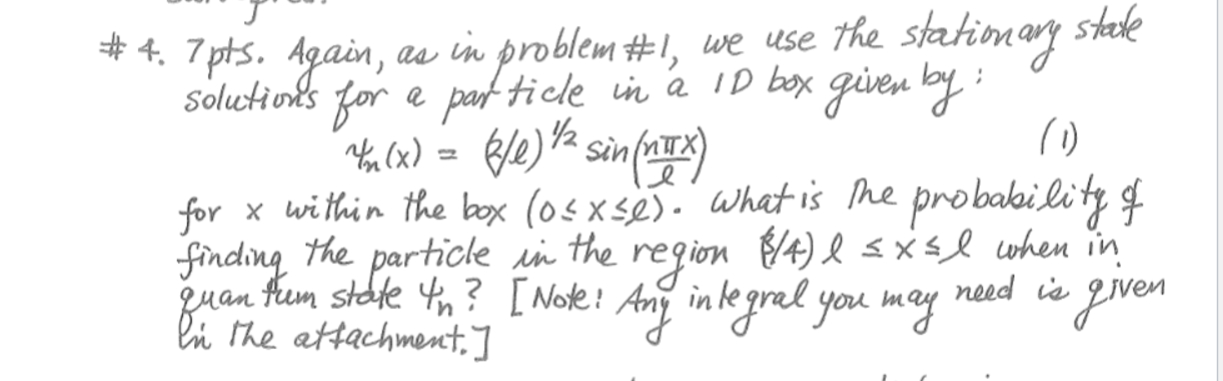 # 4. 7pts. Again, as in problem #1, we use the stationary state
solutions for a particle in a 1D box given by:
ψn(x) = (2/ℓ)^1/2 sin(nπx/ℓ) (1)
for x within the box (0 ≤ x ≤ ℓ). What is the probability of
finding the particle in the region (3/4) ℓ ≤ x ≤ ℓ when in
quantum state ψn? [Note: Any integral you may need is given
in the attachment.]